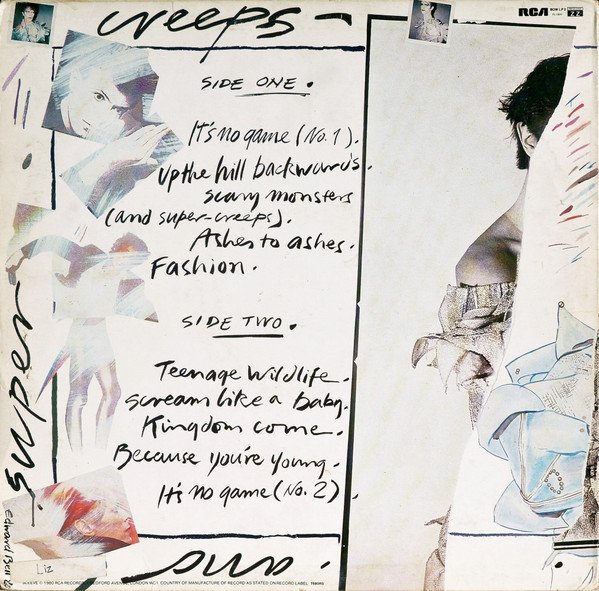 creeps -
RCA BOW LP 2
SIDE ONE.
It's no game (No. 1).
Up the hill backwards.
scary monsters
(and super-creeps).
Ashes to ashes.
Fashion.
SIDE TWO.
Teenage Wildlife.
scream like a baby.
Kingdom come.
Because you're young.
It's no game (No. 2).
super
and
Edward Bell
Liz
© 1980 RCA RECORDS, BEDFORD AVENUE, LONDON WC1. COUNTRY OF MANUFACTURE OF RECORD AS STATED ON RECORD LABEL.